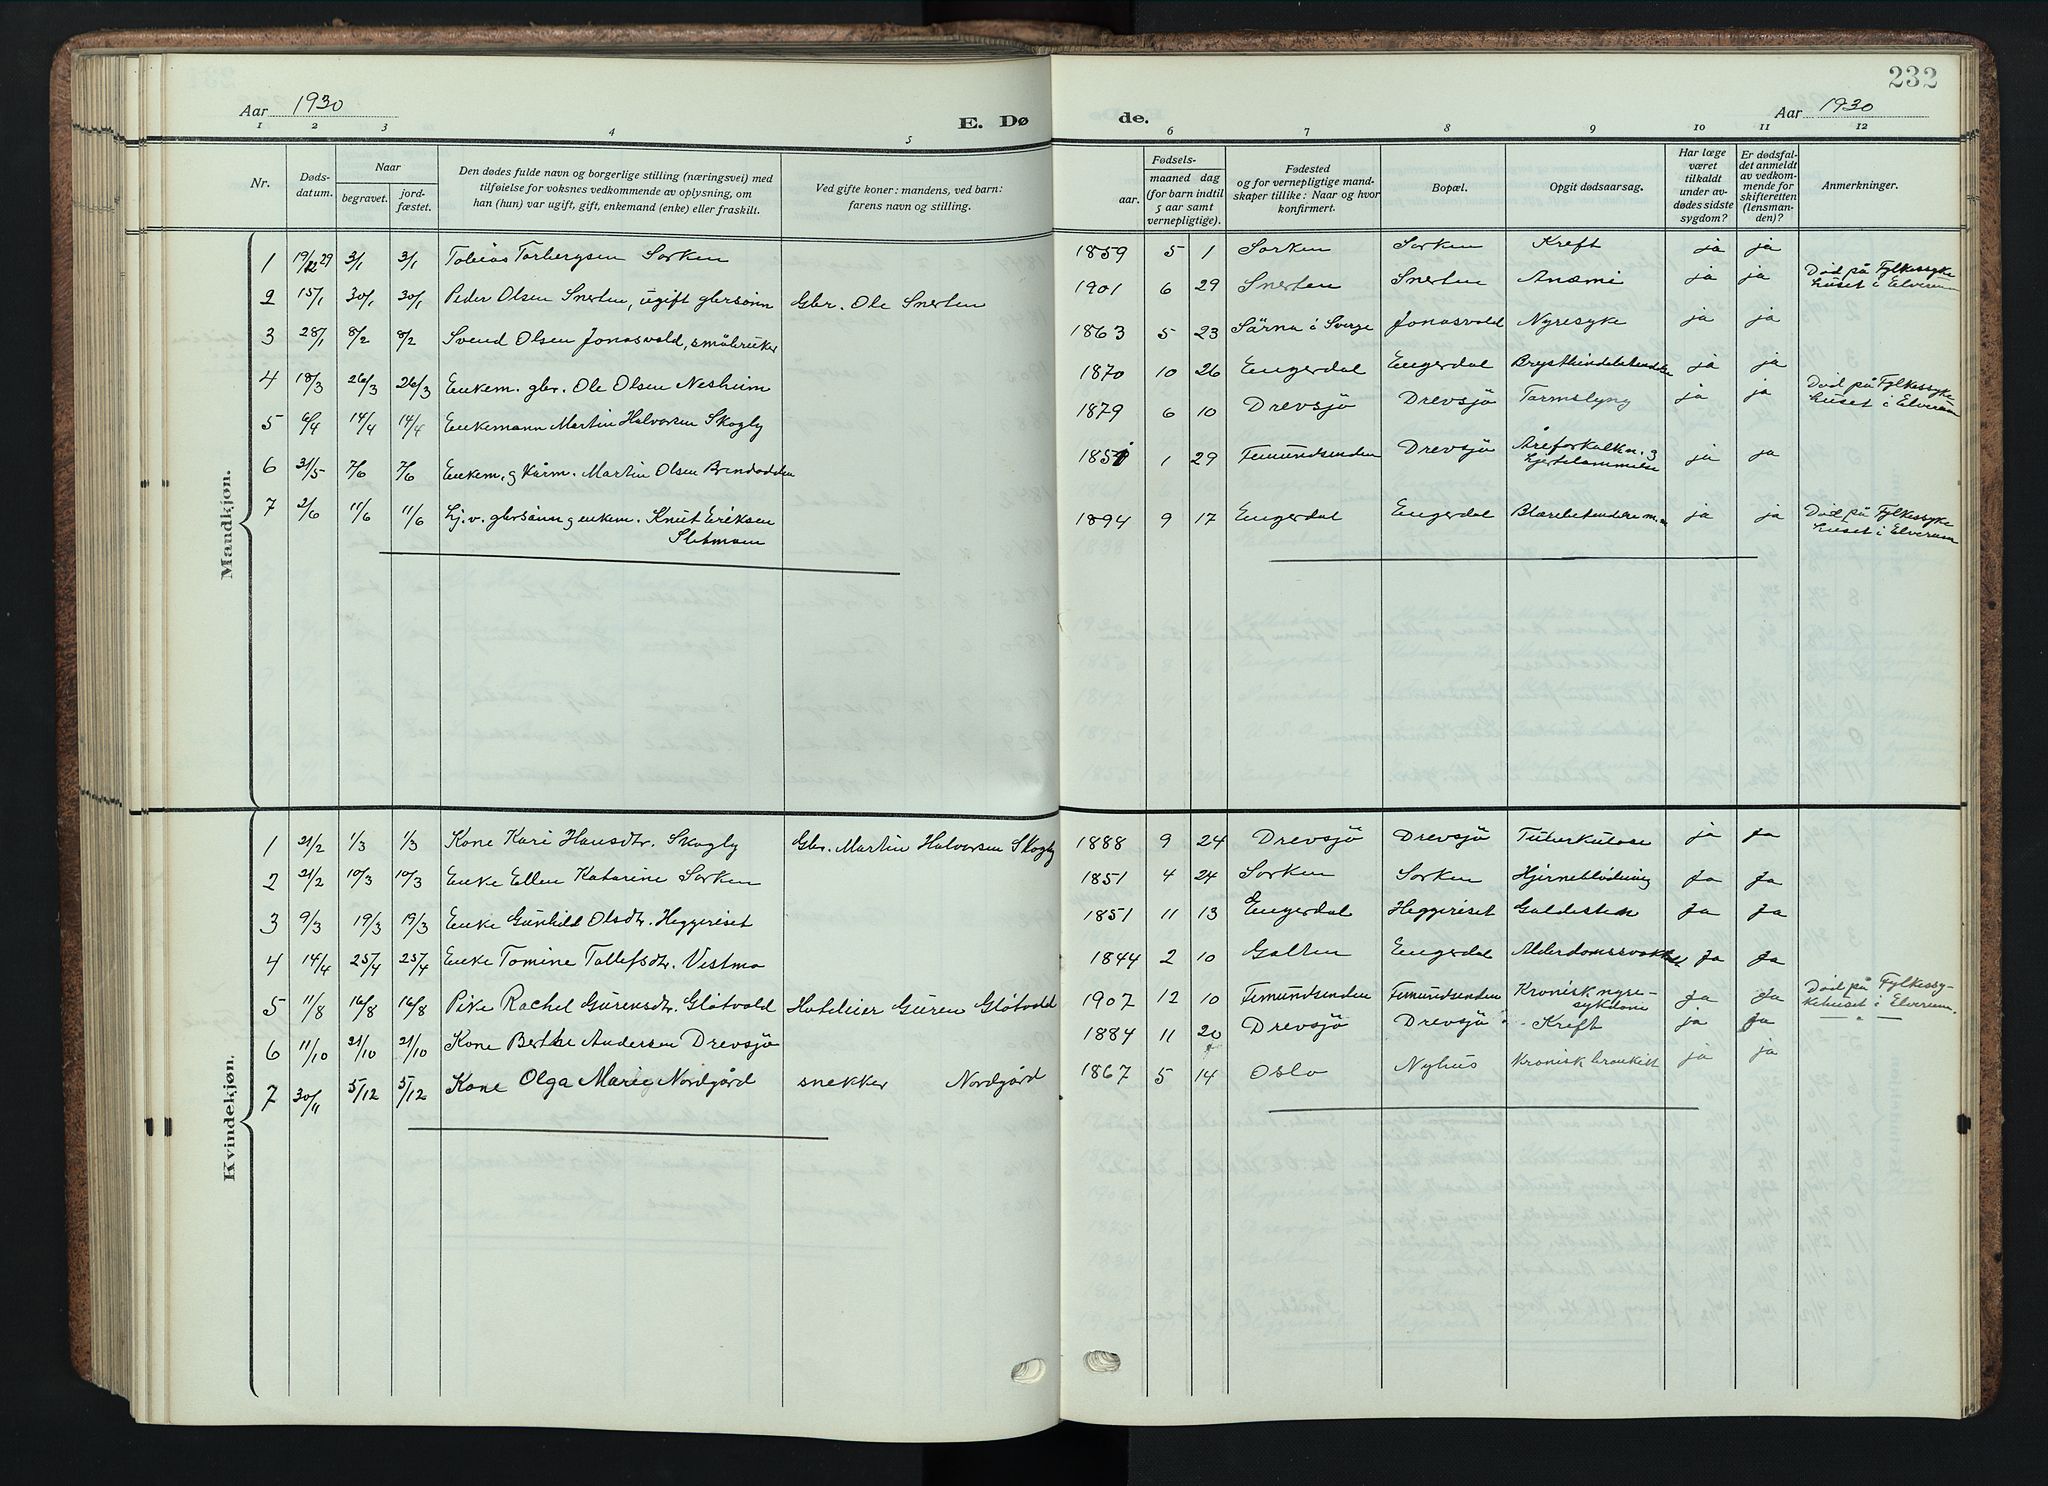 232
Aar 1930
E. Dø
de.
Aar 1930
1 2 3 4 5 6 7 8 9 10 11 12
Nr.
Døds-
datum.
Naar
begravet.
jord-
fæstet.
Den dødes fulde navn og borgerlige stilling (næringsvei) med
tilføielse for voksnes vedkommende av oplysning, om
han (hun) var ugift, gift, enkemand (enke) eller fraskilt.
Ved gifte koner: mandens, ved barn:
farens navn og stilling.
Fødsels-
aar.
maaned dag
(for barn indtil
5 aar samt
vernepligtige).
Fødested
og for vernepligtige mand-
skaper tillike: Naar og hvor
konfirmert.
Bopæl.
Opgit dødsaarsag.
Har læge
været
tilkaldt
under av-
dødes sidste
sygdom?
Er dødsfal-
det anmeldt
av vedkom-
mende for
skifteretten
(lensman-
den)?
Anmerkninger.
Mandkjøn.
1 19/12 29 3/1 3/1 Tobias Torbergsen Sorken 1859 5 1 Sorken Sorken Kreft ja ja
2 15/1 30/1 30/1 Peder Olsen Snerten, ugift gbrsønn Gbr. Ole Snerten 1901 6 29 Snerten Snerten Anæmi ja ja Död på Fylkessyke
huset i Elverum
3 28/1 8/2 8/2 Svend Olsen Jonasvold, småbruker 1863 5 23 Särna i Sverge Jonasvold Nyresyke ja ja
4 18/3 26/3 26/3 Enkem. gbr. Ole Olsen Neshum 1870 10 26 Engerdal Engerdal ja ja
5 6/4 14/4 14/4 Enkemann Martin Halvorsen Skogly 1879 6 10 Drevsjö Drevsjö Tarmslyng ja ja Död på Fylkessyke
huset i Elverum
6 31/5 7/6 7/6 Enkem. g kårm. Martin Olsen 1 29 Femundsenden Drevsjö Åreforkalkn. g
hjertelammelse ja ja
7 2/6 11/6 11/6 gbrsønn g enkem. Knut Eriksen
Sletmoen 1894 9 17 Engerdal Engerdal ja ja Död på Fylkessyke
huset i Elverum
Kvindekjøn.
1 21/2 1/3 1/3 Kone Kari Hansdtr. Skogly Gbr. Martin Halvorsen Skogly 1888 9 24 Drevsjö Drevsjö Tuberkulose ja ja
2 21/2 10/3 10/3 Enke Ellen Katarine Sorken 1851 4 24 Sorken Sorken Hjerneblödning Ja Ja
3 9/3 19/3 19/3 Enke Gunhild Olsdtr. Heggeriset 1851 11 13 Engerdal Heggeriset Galdesten Ja Ja
4 14/4 25/4 25/4 Enke Tomine Tollefsdtr. Vestmo 1844 2 10 Galten Engerdal Alderdomssvakhet Ja Ja
5 11/8 16/8 16/8 Pike Rachel Gurensdtr. Glötvold Hoteleier Guren Glötvold 1907 12 10 Femundsenden Femundsenden Kronisk nyre-
sykdom Ja Ja Död på Fylkessy-
kehuset i Elverum.
6 11/10 21/10 21/10 Kone Berthe Andersen Drevsjö 1884 11 20 Drevsjö Drevsjö Kreft ja Ja "
7 30/11 5/12 5/12 Kone Olga Marie Nordgård snekker Nordgård 1867 5 14 Oslo Nyhus Kronisk bronkitt ja ja